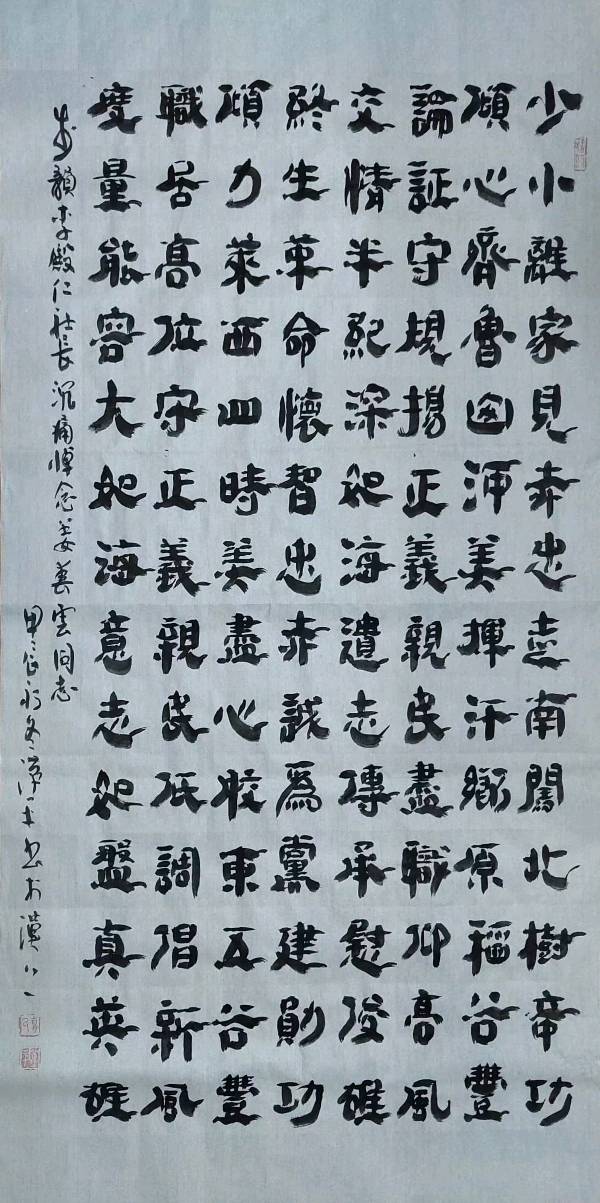 少小離家見赤忠走南闖北樹功
傾心齊魯山河美揮汗鄉原稻谷豐
論証守規揚正義親民盡職仰高風
交情半紀深如海遺志傳承慰俊雄
終生革命懷智忠赤誠為黨建勛功
傾力萊西四時美盡心膠東五谷豐
職居高位守正義親民低調倡新風
度量能容大如海意志如盤真英雄
步韻李殿仁社長沉痛悼念姜善雲同志
甲辰初冬書於